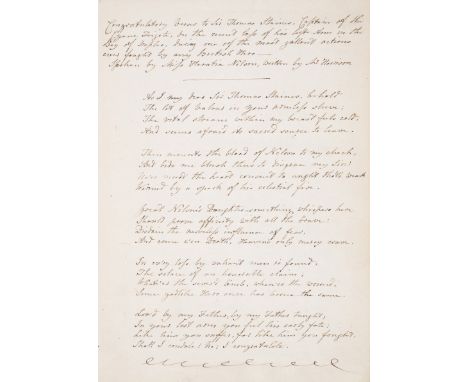 Congratulatory Verses to Sir Thomas Staines, Captain of the
Cyane Frigate, on the recent loss of his left Arm in the
Bay of Naples, during one of the most gallant actions
ever fought by any British Hero—
Spoken by Miss Horatia Nelson, written by Mr Harrison
As I my dear Sir Thomas Staines, behold
The of Valour in your armless sleeve;
The vital streams within my breast feels cold,
And seems afraid its sacred source to leave.
Then mounts the blood of Nelson to my cheek,
And bids me blush thus to disgrace my Sire!
Nor needs the heart consent to aught that's weak
Warm'd by a spark of his celestial fire.
Great Nelson's Daughter, something whispers here
Should prove affinity with all the brave:
Disdain the influence of fear,
And some even Death, Heavens only mercy crave.
In every loss by valiant men is found,
The of an honorable claim,
the wound,
Some godlike Hero once has borne the same.
Lov'd by my Father, by my Father taught,
In your lost arm you feel his early fate;
Like him you suffer, for like him you fought,
Shall I condole! No; I congratulate.